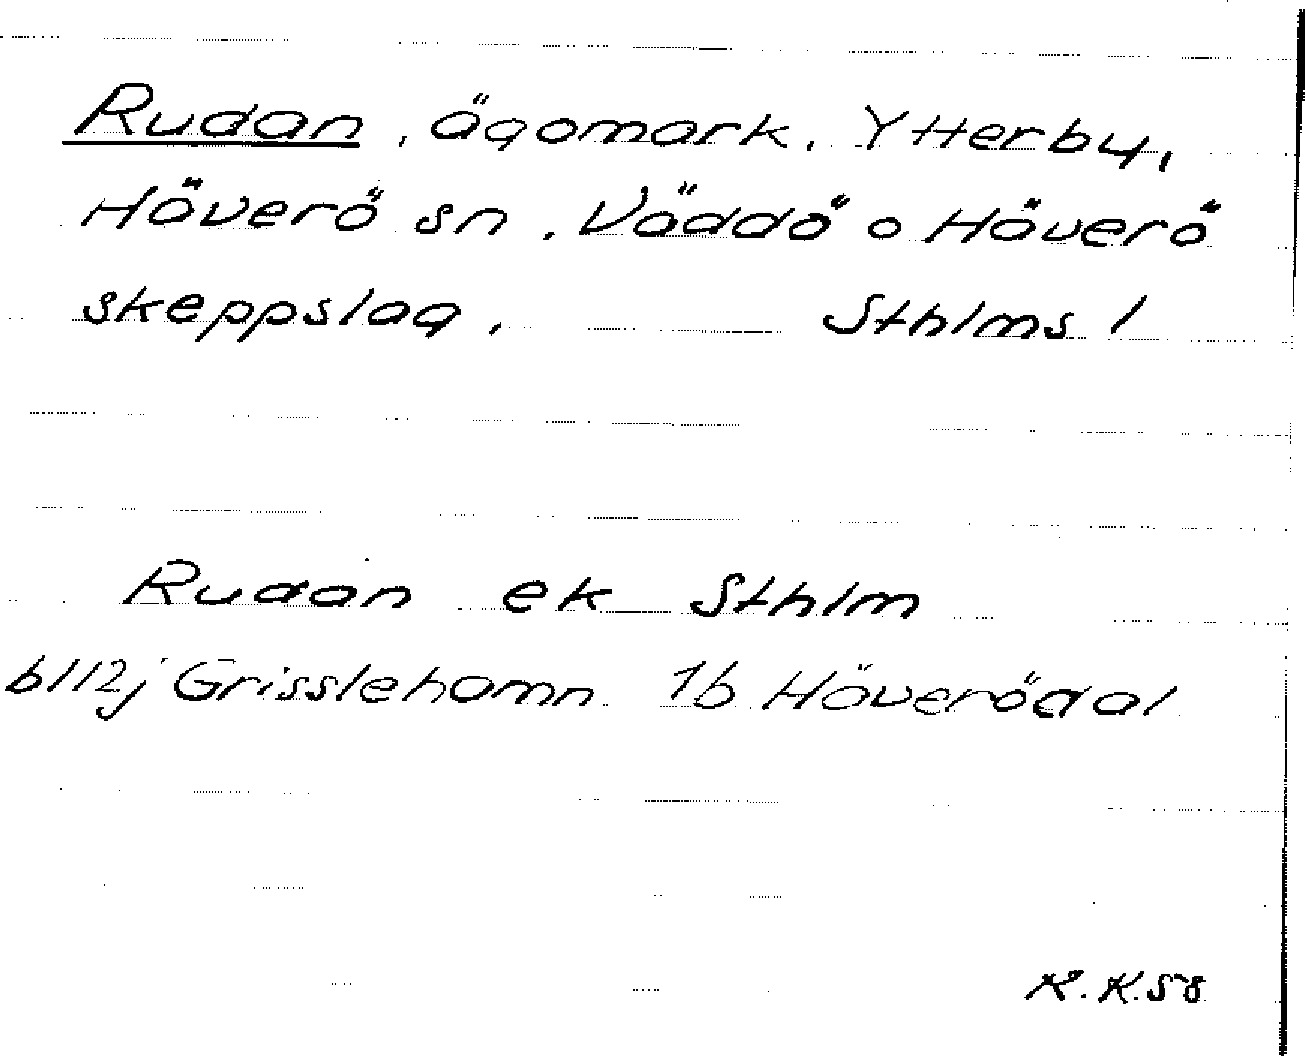 Rudan, ägomark, Ytterby,
Häverö sn, Väddö o Häverö
skeppslag, Sthlms l
Rudan ek Sthlm
bl 12j Grisslehamn 1b Häverödal
K. K. 58